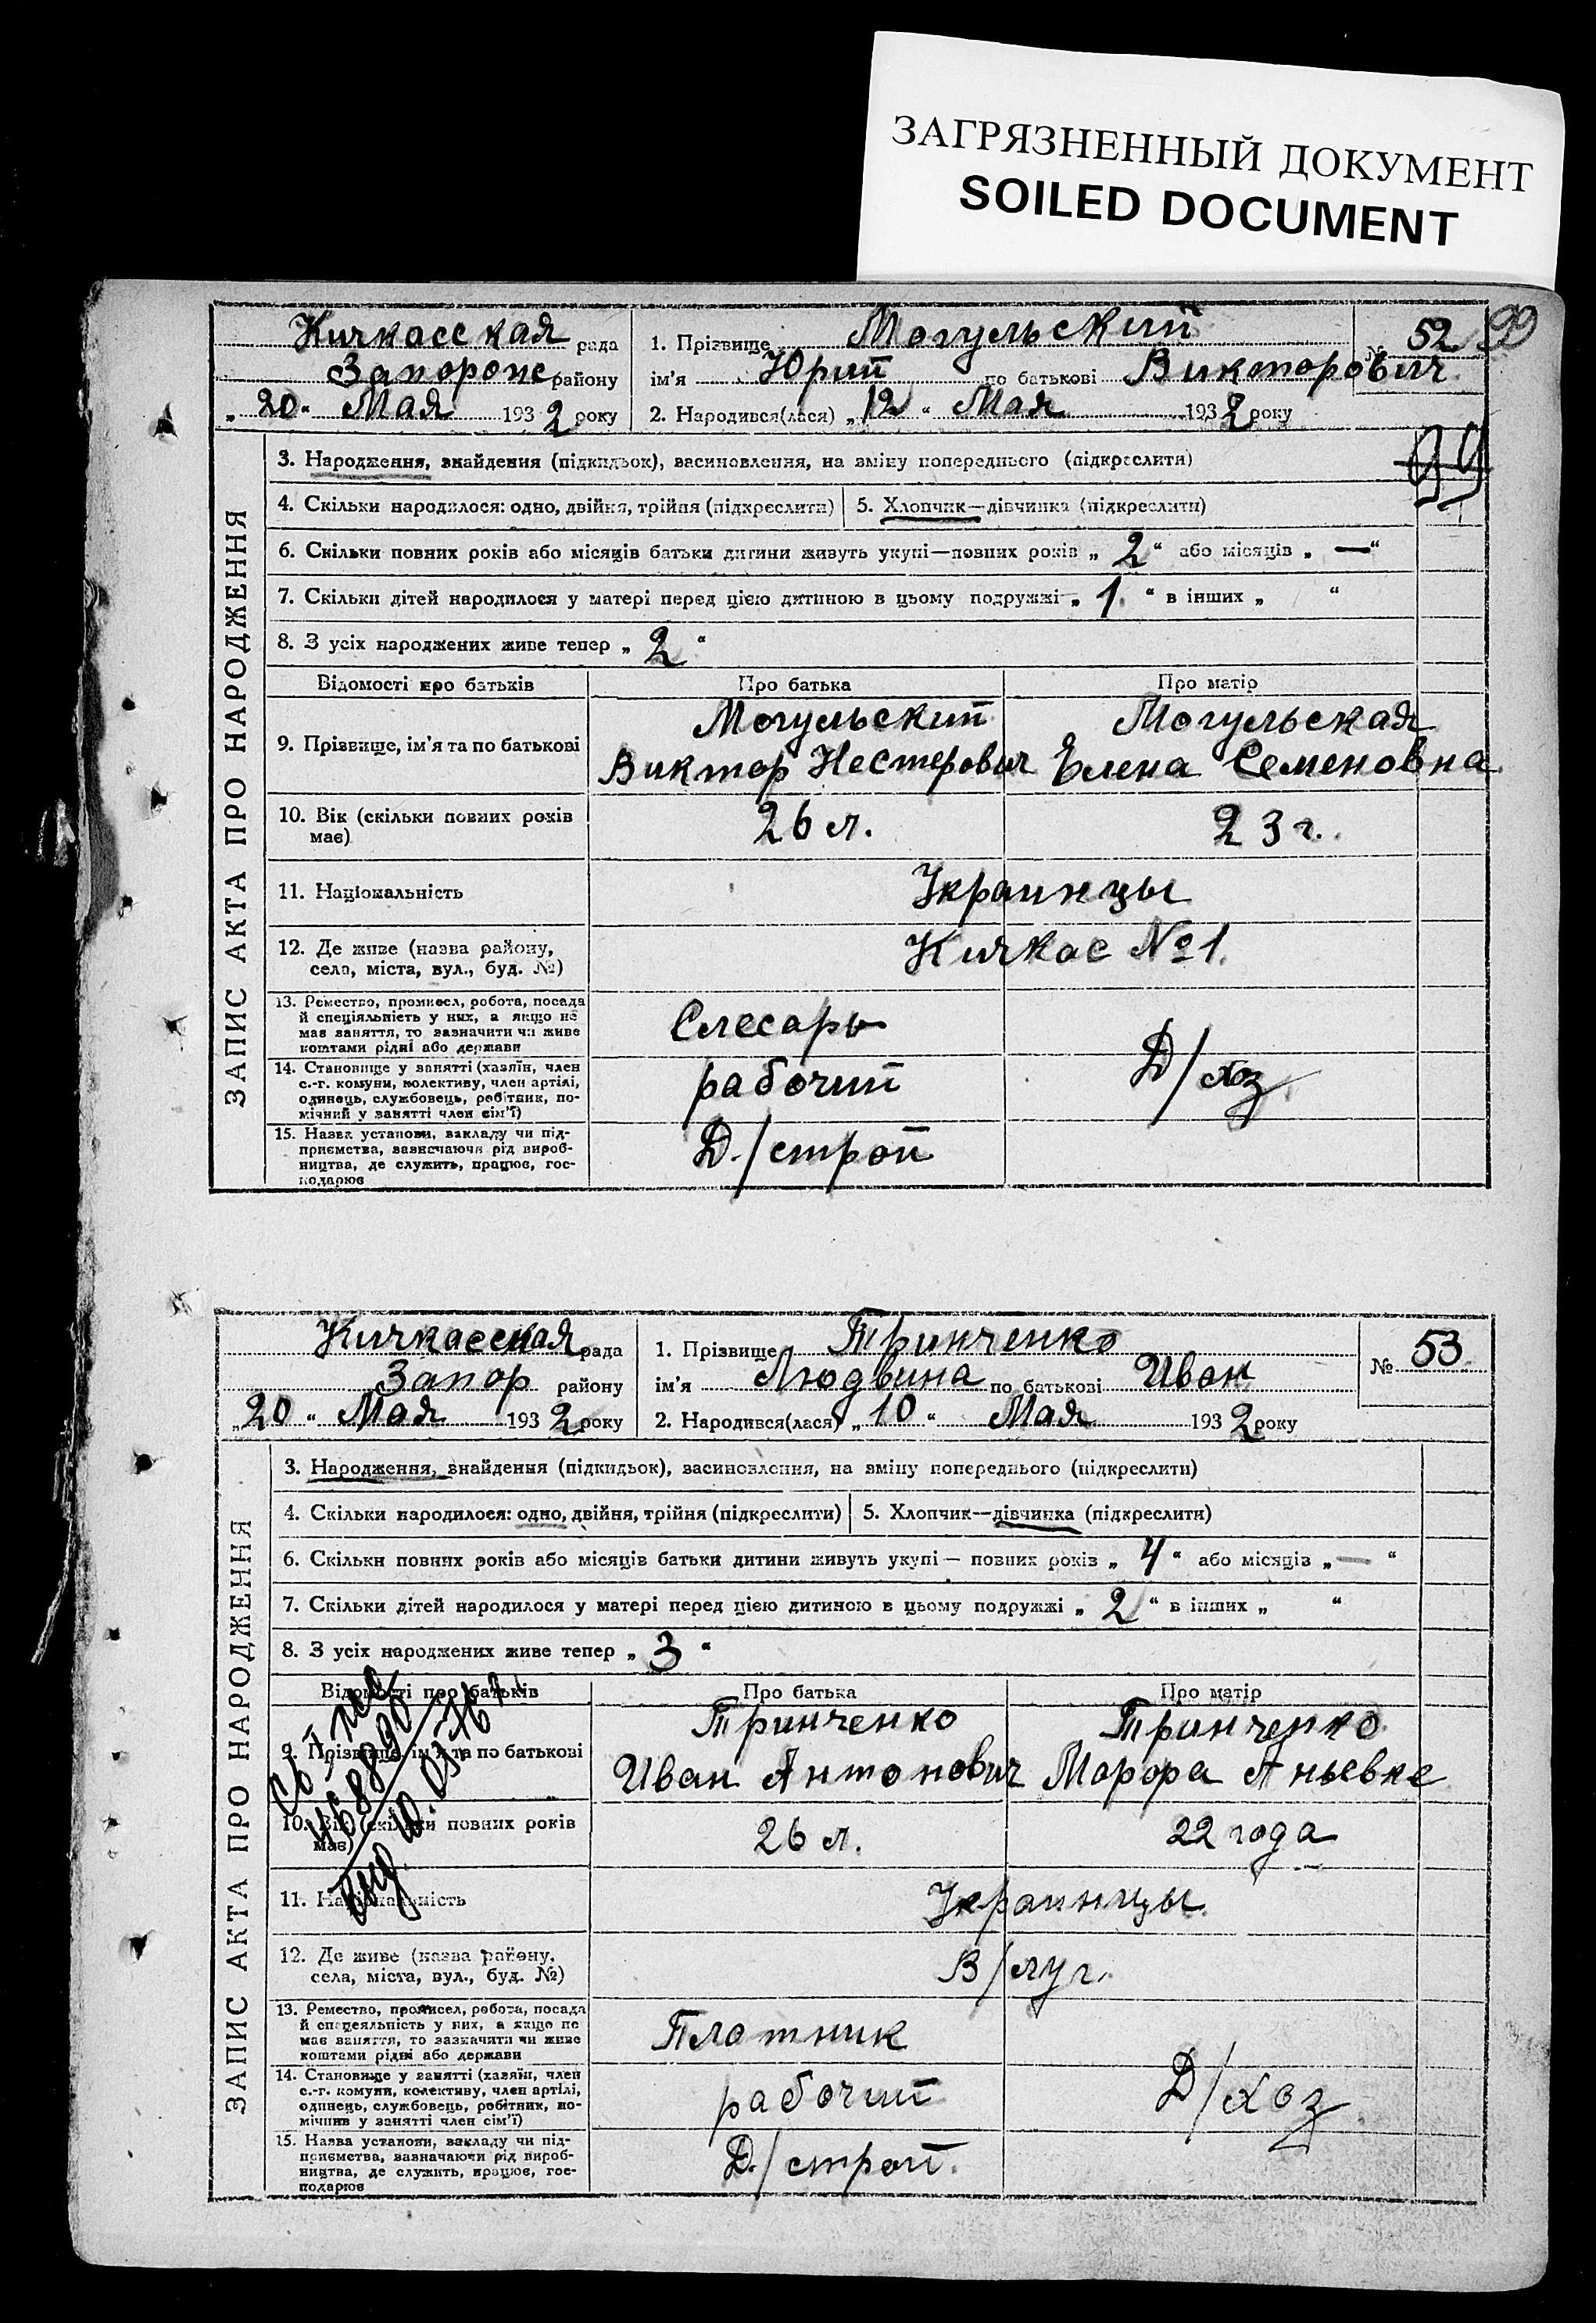 ЗАГРЯЗНЕННЫЙ ДОКУМЕНТ
SOILED DOCUMENT
99
Кичкасская рада
Запорож району
„20“ Мая 1932 року
1. Прізвище Могульский
№ 52
ім’я Юрий по батькові Викторович
2. Народився(лася) „12“ Мая 1932 року
99
ЗАПИС АКТА ПРО НАРОДЖЕННЯ
3. Народження, знайдення (підкидьок), васиновлення, на зміну попереднього (підкреслити)
4. Скільки народилося: одно, двійня, трійня (підкреслити)
5. Хлопчик—дівчинка (підкреслити)
6. Скільки повних років або місяців батьки дитини живуть укупі—повних років „2“ або місяців „—“
7. Скільки дітей народилося у матері перед цією дитиною в цьому подружжі „1“ в інших „ “
8. З усіх народжених живе тепер „2“
Відомості про батьків
Про батька
Про матір
9. Прізвище, ім’я та по батькові
Могульский
Виктор Нестерович
Могульская
Елена Семеновна
10. Вік (скільки повних років
має)
26 л.
23 г.
11. Національність
Украинцы
12. Де живе (назва району,
села, міста, вул., буд. №)
Кичкас №1.
13. Ремество, промисел, робота, посада
й спеціяльність у них, а якщо не
має заняття, то зазначити чи живе
коштами рідні або держави
Слесарь
14. Становище у занятті (хазяїн, член
с.-г. комуни, колективу, член артілі,
одинець, службовець, робітник, по-
мічний у занятті член сім’ї)
рабочий
Д/хоз
15. Назва установи, закладу чи під-
приємства, зазначаючи рід вироб-
ництва, де служить, працює, гос-
подарює
Д./строй
Кичкасская рада
Запор району
„20“ Мая 1932 року
1. Прізвище Тринченко
№ 53
ім’я Людвина по батькові Иван
2. Народився(лася) „10“ Мая 1932 року
ЗАПИС АКТА ПРО НАРОДЖЕННЯ
3. Народження, знайдення (підкидьок), васиновлення, на зміну попереднього (підкреслити)
4. Скільки народилося: одно, двійня, трійня (підкреслити)
5. Хлопчик—дівчинка (підкреслити)
6. Скільки повних років або місяців батьки дитини живуть укупі — повних років „4“ або місяців „—“
7. Скільки дітей народилося у матері перед цією дитиною в цьому подружжі „2“ в інших „ “
8. З усіх народжених живе тепер „3“
Відомості про батьків
Про батька
Про матір
9. Прізвище, ім’я та по батькові
Тринченко
Иван Антонович
Тринченко
10. Вік (скільки повних років
має)
26 л.
22 года
11. Національність
Украинцы
12. Де живе (назва району,
села, міста, вул., буд. №)
В/луг.
13. Ремество, промисел, робота, посада
й спеціяльність у них, а якщо не
має заняття, то зазначити чи живе
коштами рідні або держави
Плотник
14. Становище у занятті (хазяїн, член
с.-г. комуни, колективу, член артілі,
одинець, службовець, робітник, по-
мічний у занятті член сім’ї)
рабочий
Д/хоз
15. Назва установи, закладу чи під-
приємства, зазначаючи рід вироб-
ництва, де служить, працює, гос-
подарює
Д./строй.